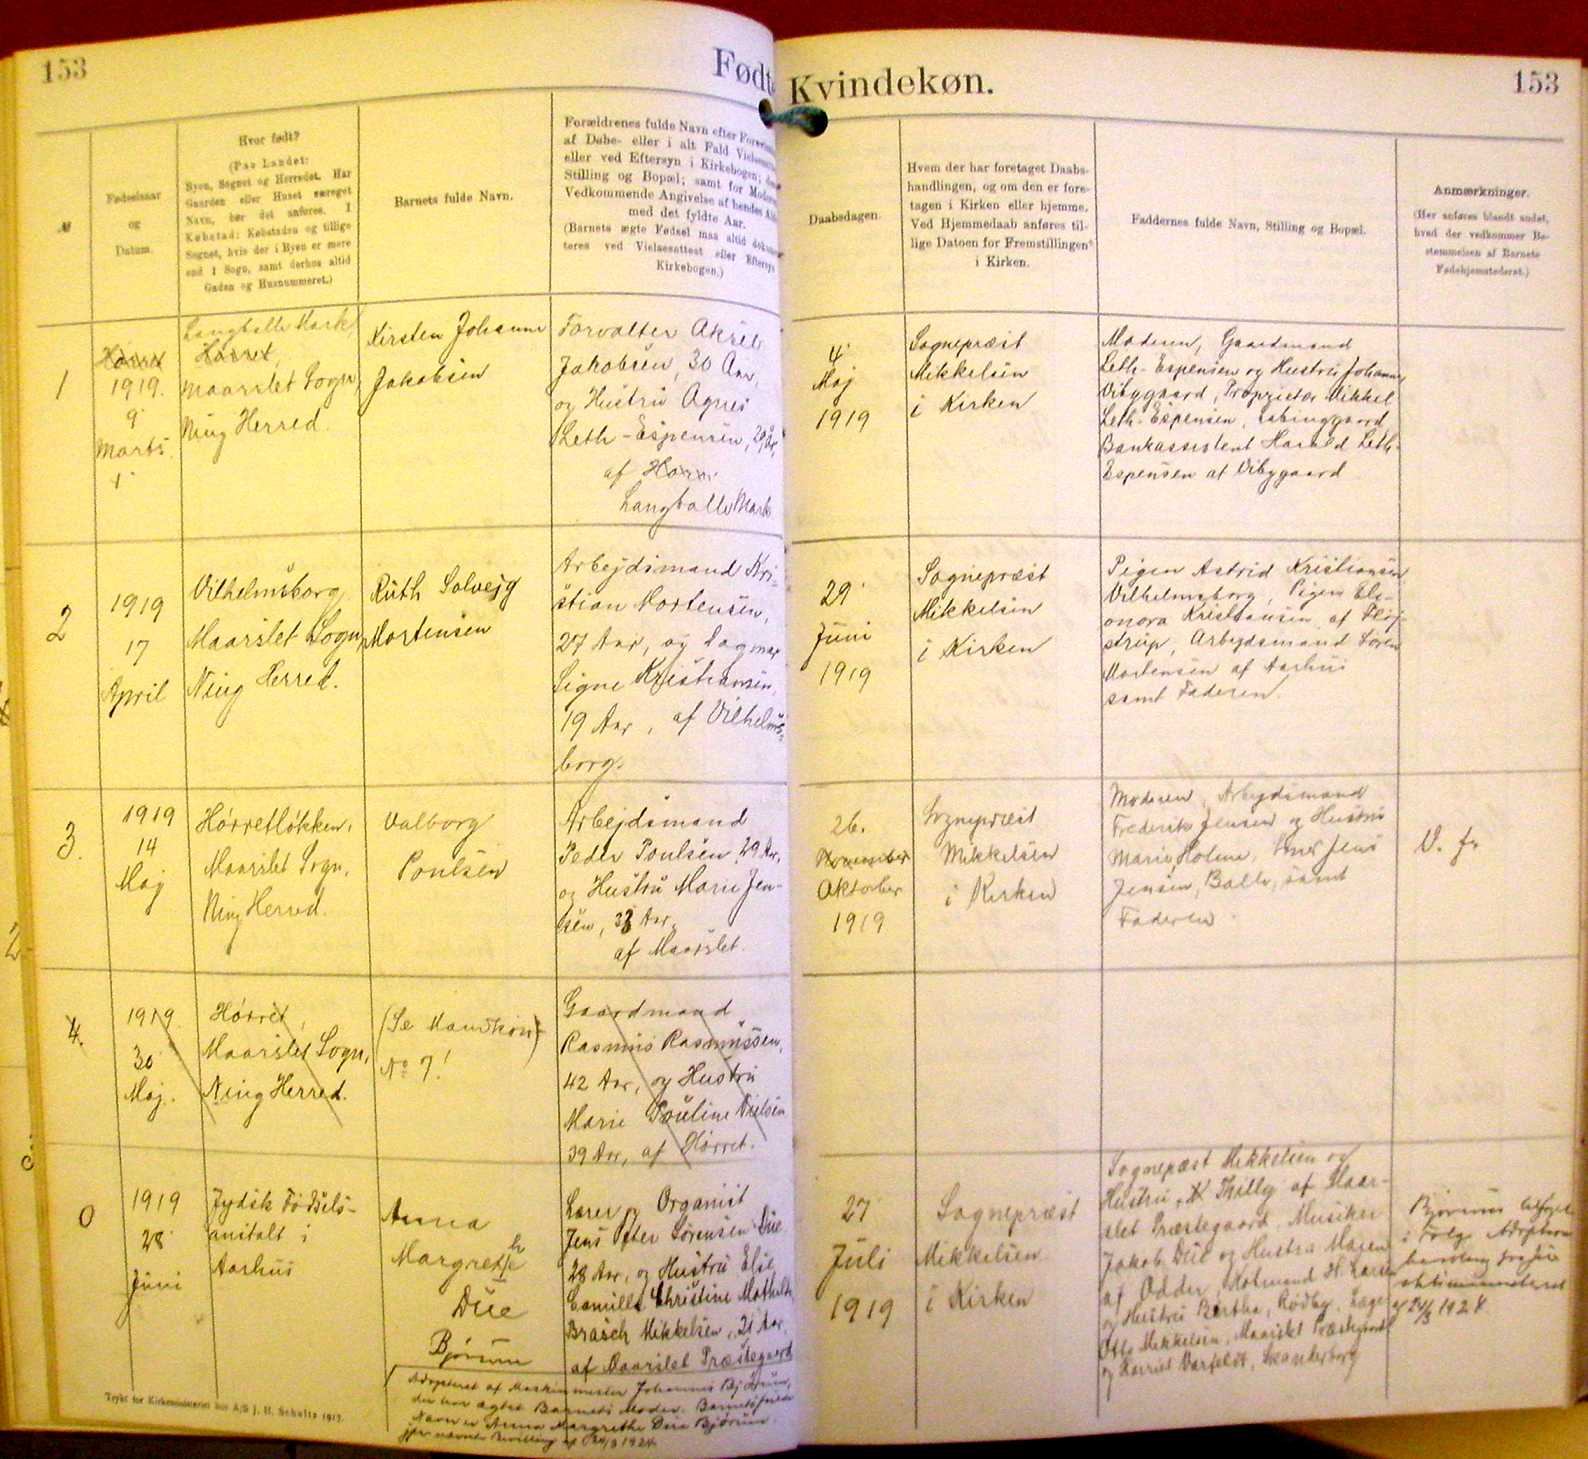 153
Født
Kvindekøn.
153
№
Fødselsaar
og
Datum.
Hvor født?
(Paa Landet:
Byen, Sognet og Herredet. Har
Gaarden eller Huset særeget
Navn, bør det anføres. I
Købstad: Købstaden og tillige
Sognet, hvis der i Byen er mere
end 1 Sogn, samt derhos altid
Gaden og Husnummeret.)
Barnets fulde Navn.
Forældrenes fulde Navn efter
af Daabs- eller i alt Fald
eller ved Eftersyn i Kirkebogen;
Stilling og Bopæl; samt for
Vedkommende Angivelse af hendes
med det fyldte Aar.
(Barnets ægte Fødsel maa altid
teres ved Vielsesattest eller Eftersyn
Kirkebogen.)
Daabsdagen.
Hvem der har foretaget Daabs-
handlingen, og om den er fore-
tagen i Kirken eller hjemme.
Ved Hjemmedaab anføres til-
lige Datoen for Fremstillingen
i Kirken.
Faddernes fulde Navn, Stilling og Bopæl.
Anmærkninger.
(Her anføres blandt andet,
hvad der vedkommer Be-
stemmelsen af Barnets
Fødehjemstederet.)
1
1919.
9
Marts.
Langballe Mark
Hørret,
Maarslet Sogn,
Ning Herred.
Kirsten Johanne
Jakobsen
Forvalter Aksel
Jakobsen, 30 Aar,
og Hustru Agnes
Leth-Espensen,
af
Langballe Mark
4
Maj
1919
Sognepræst
Mikkelsen
i Kirken
Moderen, Gaardmand
Leth-Espensen og Hustru Johanne,
Vibygaard, Proprietær Mikkel
Leth-Espensen,
Bankassistent Harald Leth-
Espensen af Vibygaard
2
1919
17
April
Vilhelmsborg
Maarslet Sogn,
Ning Herred.
Ruth Solvejg
Mortensen
Arbejdsmand Kri-
stian Mortensen,
27 Aar, og Dagmar
Signe Kristiansen,
19 Aar, af Vilhelms-
borg.
29
Juni
1919
Sognepræst
Mikkelsen
i Kirken
Pigen Astrid Kristiansen
Vilhelmsborg, Pigen Ele-
onora Kristiansen af Fløj-
strup, Arbejdsmand Søren
Mortensen af Aarhus
samt Faderen.
3.
1919
14
Maj
Hørretløkken,
Maarslet Sogn,
Ning Herred.
Valborg
Poulsen
Arbejdsmand
Peder Poulsen, 29 Aar,
og Hustru Marie Jen-
sen, 33 Aar,
af Maarslet.
26.
November
Oktober
1919
Sognepræst
Mikkelsen
i Kirken
Moderen, Arbejdsmand
Frederik Jensen og Hustru
Marie Holme, Jens
Jensen, Balle, samt
Faderen.
V. fr
4.
1919
30
Maj.
Hørret,
Maarslet Sogn,
Ning Herred.
(Se Mandkøn)
No 7!
Gaardmand
Rasmus Rasmussen,
42 Aar, og Hustru
Marie Pouline Nielsen
39 Aar, af Hørret.
0
1919
28
Juni
Jydsk Fødsels-
anstalt i
Aarhus
Anna
Margrethe
Due
Bjørum
Lærer og Organist
Jens Peter Sørensen Due
28 Aar, og Hustru Else
Camilla Christine Mathilde
Brasch Mikkelsen, 21 Aar,
af Maarslet Præstegaard
27
Juli
1919
Sognepræst
Mikkelsen
i Kirken
Sognepræst Mikkelsen og
Hustru, Thilly af Maar-
slet Præstegaard, Musiker
Jakob Due og Hustru Maren
af Odder, H. Larsen
og Hustru Bertha, Rødby, Læge
Otto Mikkelsen, Maarslet Præstegaard
og Harriet Varfeldt, Skanderborg
Bjørum
i Følge Adoptions
bevilling fra Ju-
stitsministeriet
af 24/3 1924.
Adopteret af Maskinmester Johannes Bjørum,
der har ægtet Barnets Moder. Barnets fulde
Navn er Anna Margrethe Due Bjørum
jfr. nævnte Bevilling af 24/3 1924.
Trykt for Kirkeministeriet hos A/S J. H. Schultz 1917.